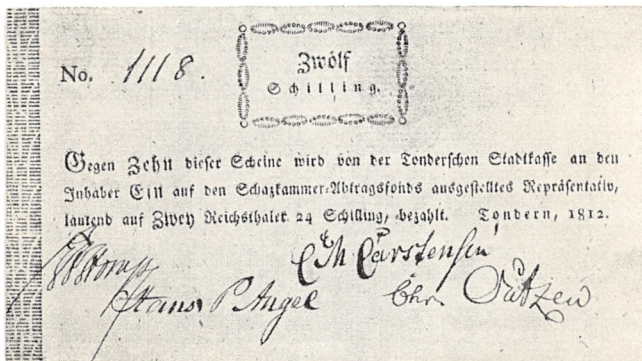 No. 1118.
Zwölf
Schilling.
Gegen Zehn dieser Scheine wird von der Tonderschen Stadtkasse an den
Inhaber Ein auf den Schazkammer-Abtragsfonds ausgestelltes Repräsentativ,
lautend auf Zwey Reichsthaler 24 Schilling, bezahlt. Tondern, 1812.
C M Carstensen
Hans P Angel Chr.